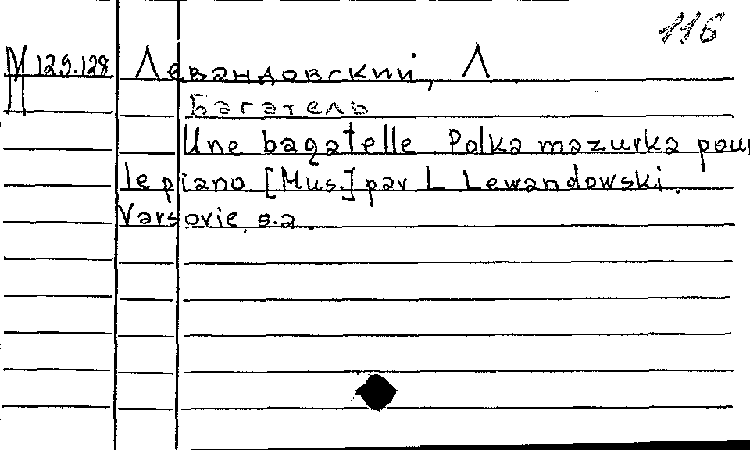 116
М 129.128 Левандовский, Л
Багатель
Une bagatelle Polka mazurka pour
le piano [Mus.] par L Lewandowski.
Varsovie, s.a.